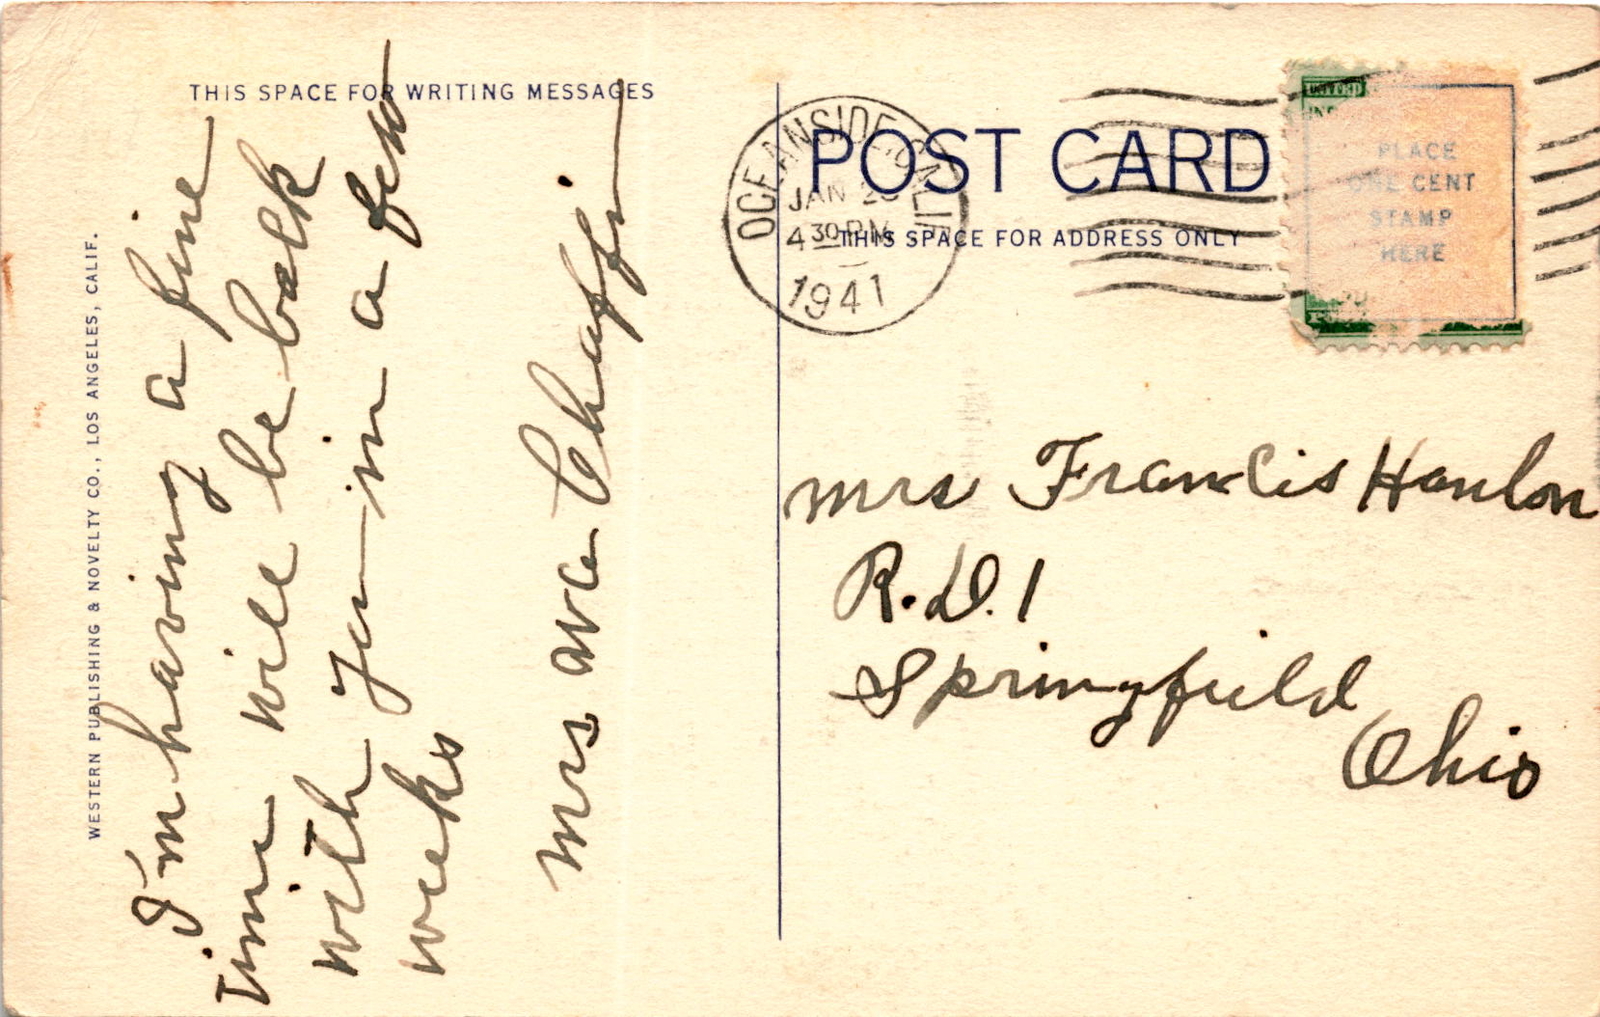 THIS SPACE FOR WRITING MESSAGES
I'm having a fine
time will be back
with you in a few
weeks
Mrs Ava Chaffin
WESTERN PUBLISHING & NOVELTY CO., LOS ANGELES, CALIF.
POST CARD
THIS SPACE FOR ADDRESS ONLY
OCEANSIDE, CALIF.
JAN
4 30 PM
1941
PLACE
ONE CENT
STAMP
HERE
Mrs Francis Hanlon
R.D. 1
Springfield
Ohio